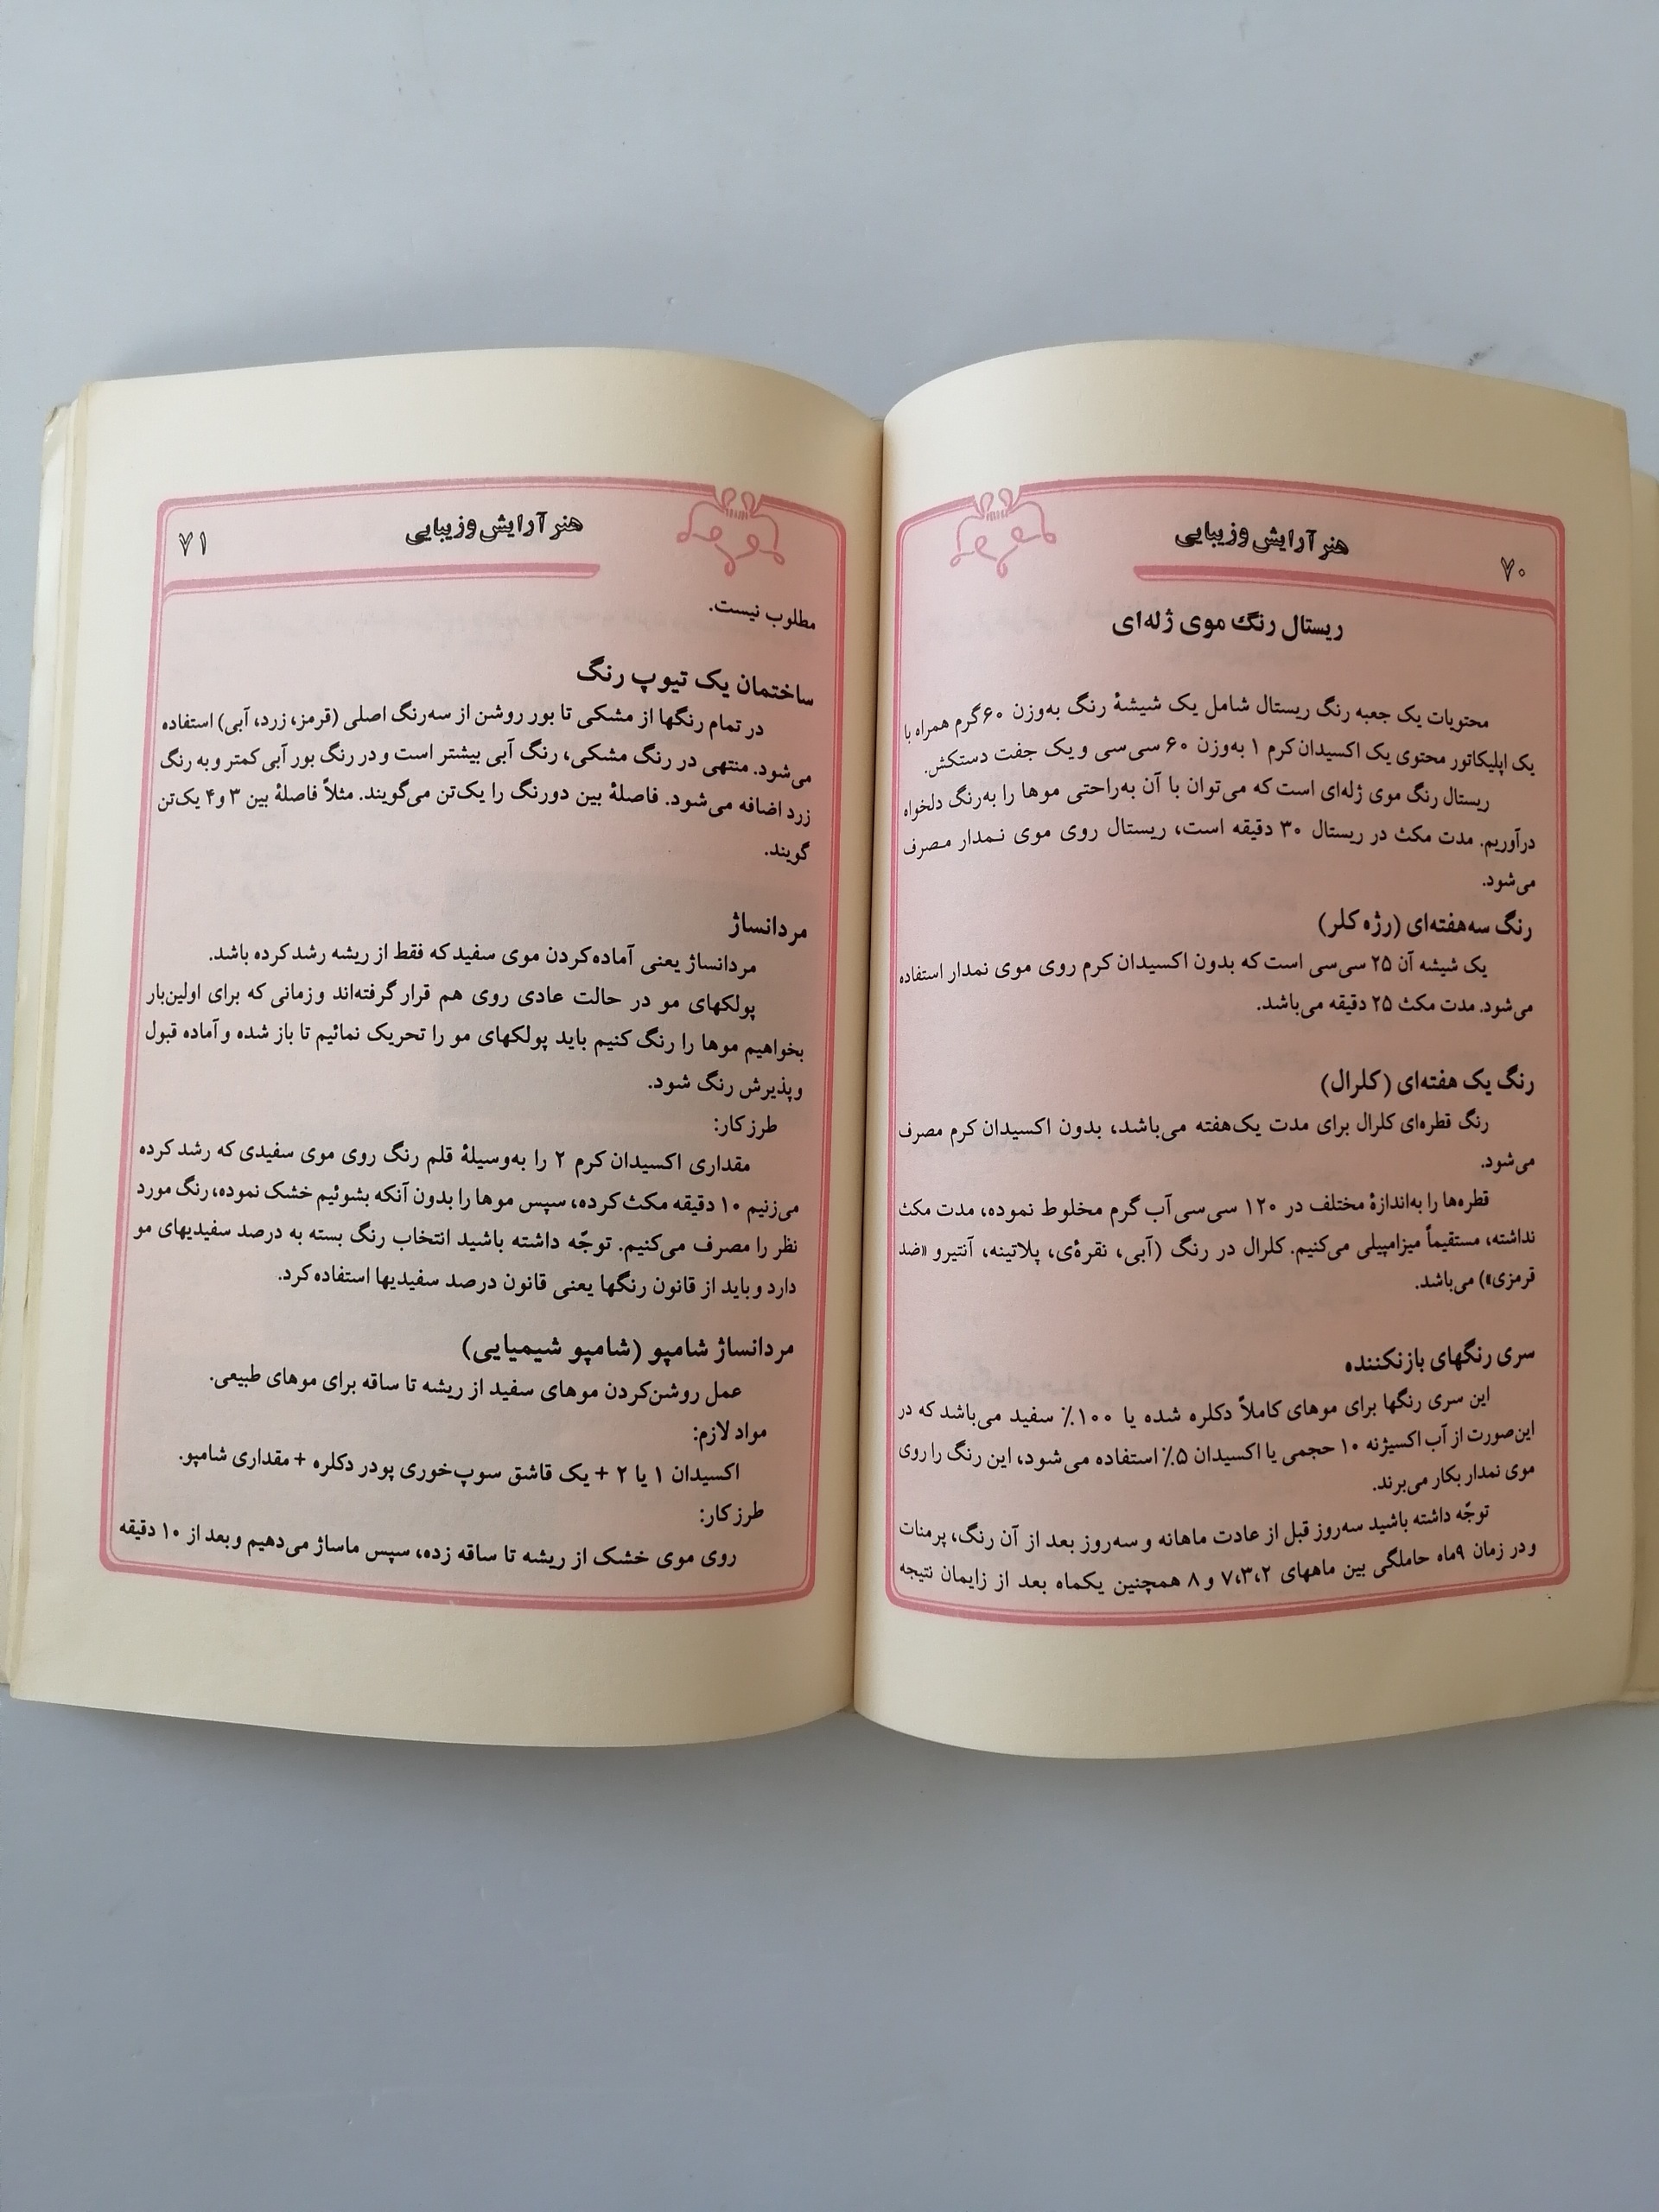 ۷۰
هنر آرایش و زیبایی
ریستال رنگ موی ژله‌ای
محتویات یک جعبه رنگ ریستال شامل یک شیشهٔ رنگ به‌وزن ۶۰گرم همراه با
یک اپلیکاتور محتوی یک اکسیدان‌کرم ۱ به‌وزن ۶۰ سی‌سی و یک جفت دستکش.
ریستال رنگ موی ژله‌ای است که می‌توان با آن به‌راحتی موها را به‌رنگ دلخواه
درآوریم. مدت مکث در ریستال ۳۰ دقیقه است، ریستال روی موی نمدار مصرف
می‌شود.
رنگ سه‌هفته‌ای (رژه کلر)
یک شیشه آن ۲۵ سی‌سی است که بدون اکسیدان کرم روی موی نمدار استفاده
می‌شود. مدت مکث ۲۵ دقیقه می‌باشد.
رنگ یک هفته‌ای (کلرال)
رنگ قطره‌ای کلرال برای مدت یک‌هفته می‌باشد، بدون اکسیدان کرم مصرف
می‌شود.
قطره‌ها را به‌اندازهٔ مختلف در ۱۲۰ سی‌سی آب گرم مخلوط نموده، مدت مکث
نداشته، مستقیماً میزامپیلی می‌کنیم. کلرال در رنگ (آبی، نقره‌ی، پلاتینه، آنتیرو «ضد
قرمزی») می‌باشد.
سری رنگهای بازنکننده
این سری رنگها برای موهای کاملاً دکلره شده یا ۱۰۰٪ سفید می‌باشد که در
این‌صورت از آب اکسیژنه ۱۰ حجمی یا اکسیدان ۵٪ استفاده می‌شود، این رنگ را روی
موی نمدار بکار می‌برند.
توجّه داشته باشید سه‌روز قبل از عادت ماهانه و سه‌روز بعد از آن رنگ، پرمنات
و در زمان ۹ماه حاملگی بین ماههای ۷،۳،۲ و ۸ همچنین یکماه بعد از زایمان نتیجه
هنر آرایش و زیبایی
۷۱
مطلوب نیست.
ساختمان یک تیوپ رنگ
در تمام رنگها از مشکی تا بور روشن از سه‌رنگ اصلی (قرمز، زرد، آبی) استفاده
می‌شود. منتهی در رنگ مشکی، رنگ آبی بیشتر است و در رنگ بور آبی کمتر و به رنگ
زرد اضافه می‌شود. فاصلهٔ بین دورنگ را یک‌تن می‌گویند. مثلاً فاصلهٔ بین ۳ و۴ یک‌تن
گویند.
مردانساژ
مردانساژ یعنی آماده‌کردن موی سفید که فقط از ریشه رشد کرده باشد.
پولکهای مو در حالت عادی روی هم قرار گرفته‌اند و زمانی که برای اولین‌بار
بخواهیم موها را رنگ کنیم باید پولکهای مو را تحریک نمائیم تا باز شده و آماده قبول
و پذیرش رنگ شود.
طرز کار:
مقداری اکسیدان کرم ۲ را به‌وسیلهٔ قلم رنگ روی موی سفیدی که رشد کرده
می‌زنیم ۱۰ دقیقه مکث کرده، سپس موها را بدون آنکه بشوئیم خشک نموده، رنگ مورد
نظر را مصرف می‌کنیم. توجّه داشته باشید انتخاب رنگ بسته به درصد سفیدیهای مو
دارد و باید از قانون رنگها یعنی قانون درصد سفیدیها استفاده کرد.
مردانساژ شامپو (شامپو شیمیایی)
عمل روشن‌کردن موهای سفید از ریشه تا ساقه برای موهای طبیعی.
مواد لازم:
اکسیدان ۱ یا ۲ + یک قاشق سوپ‌خوری پودر دکلره + مقداری شامپو.
طرز کار:
روی موی خشک از ریشه تا ساقه زده، سپس ماساژ می‌دهیم و بعد از ۱۰ دقیقه